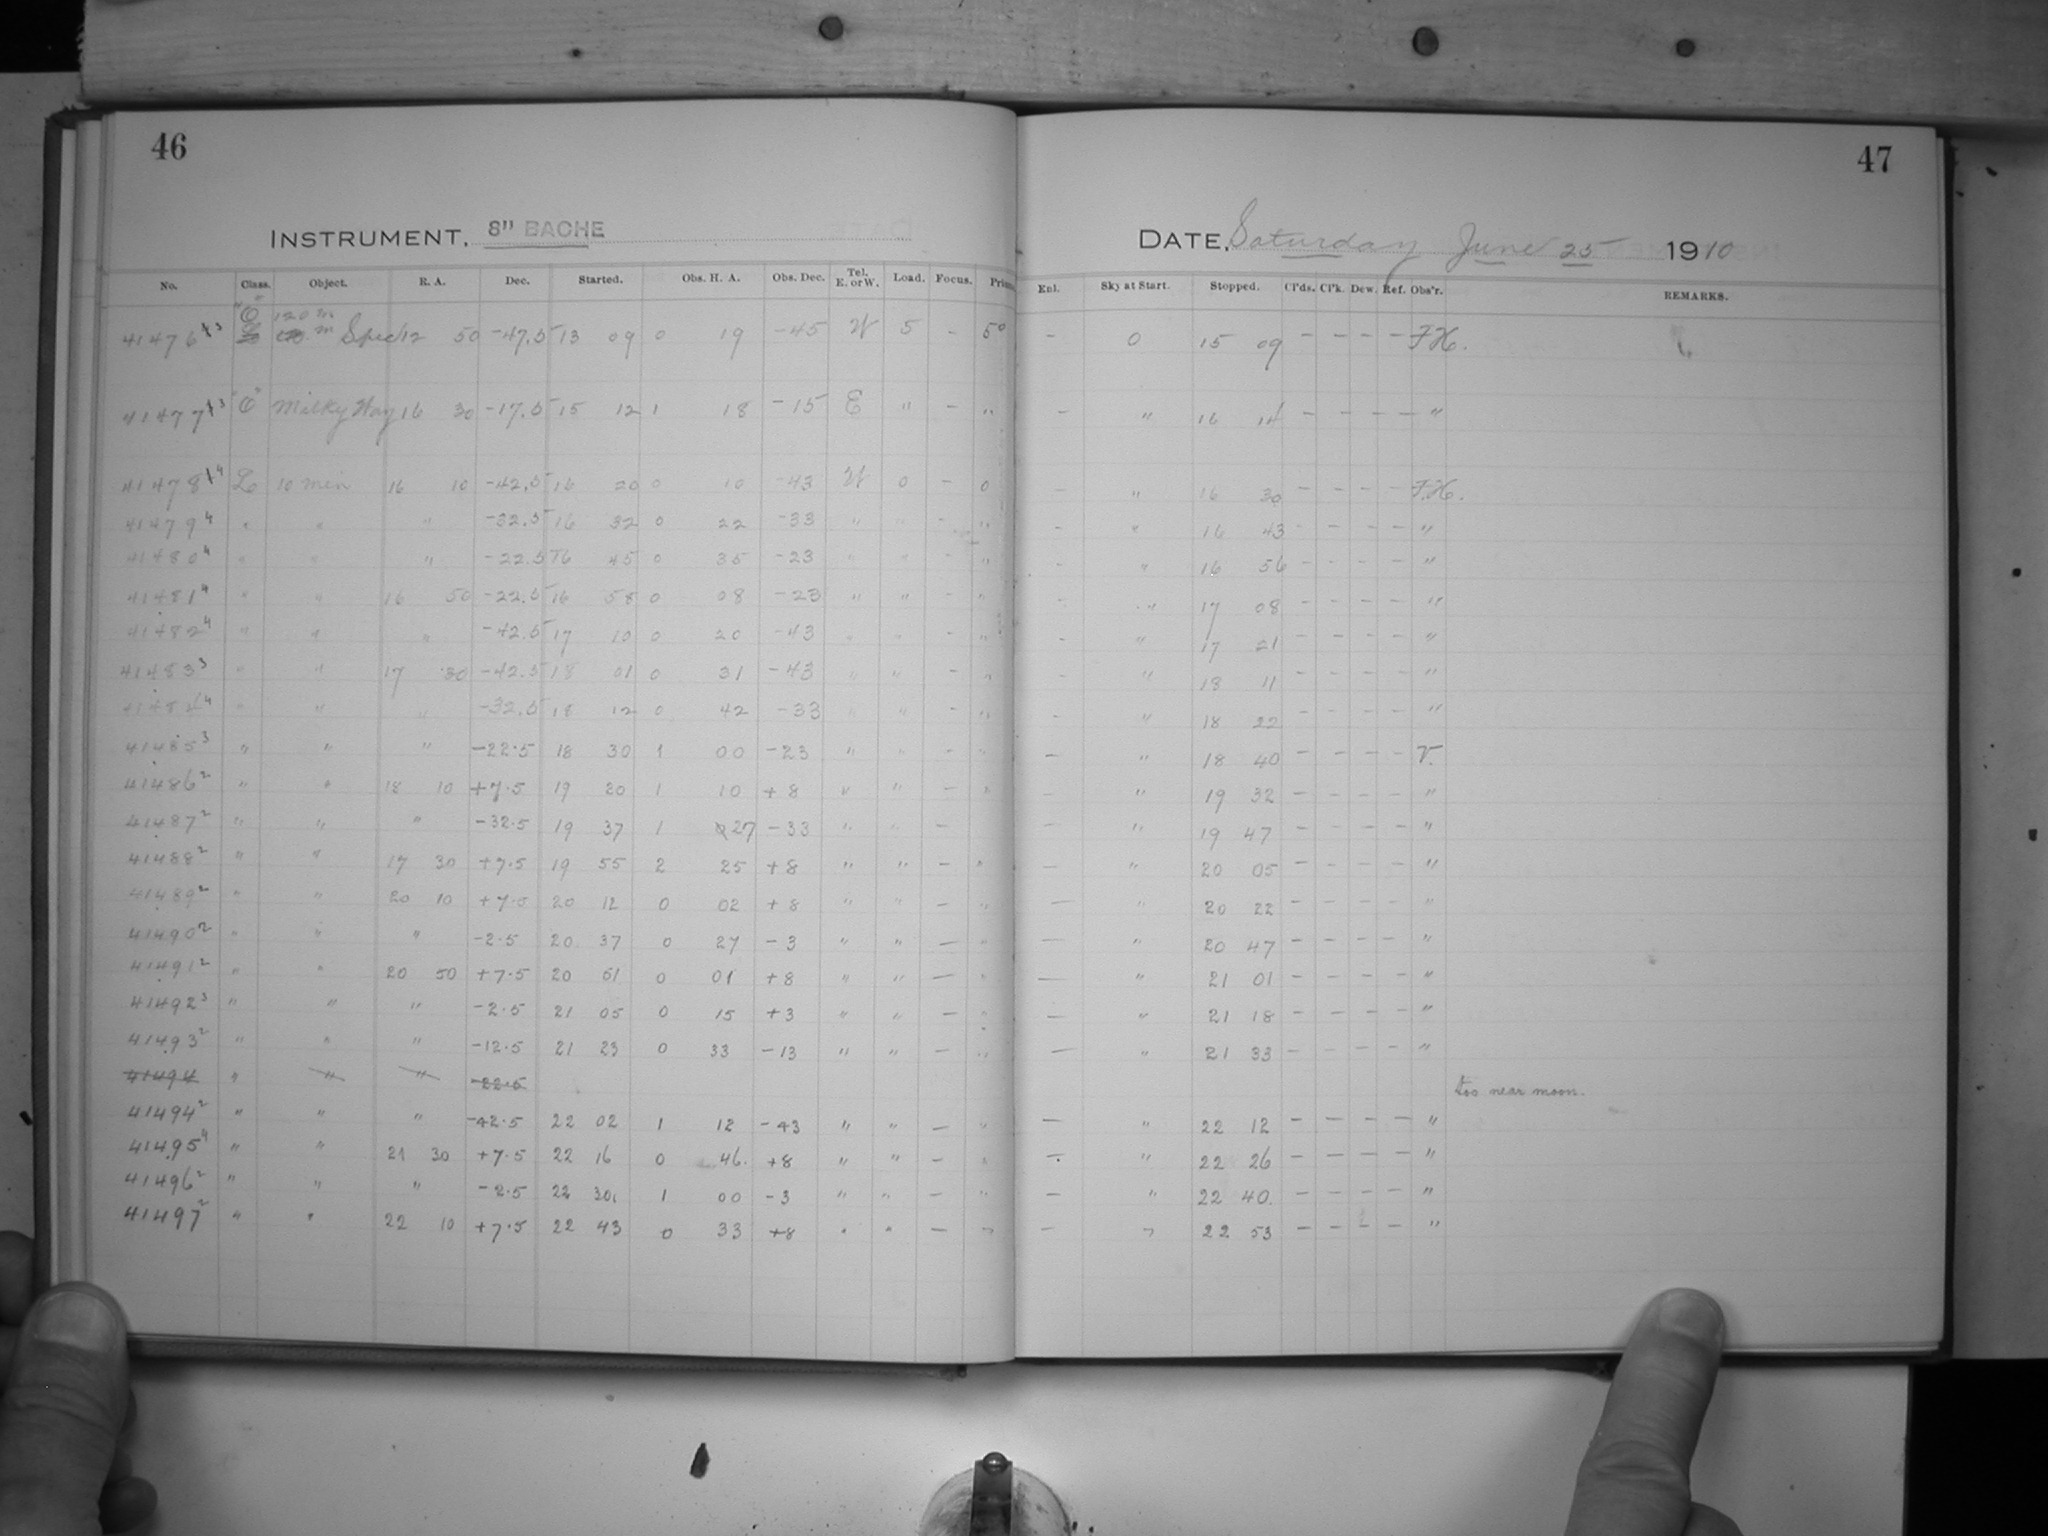 46
47
INSTRUMENT, 8" BACHE
DATE, Saturday June 25 1910
No. Class. Object. R. A. Dec. Started. Obs. H. A. Obs. Dec. Tel. E. or W. Load. Focus. Enl. Sky at Start. Stopped. Cl'ds. Cl'k. Dew. Ref. Obs'r. REMARKS.
"C" 120 m
41476 3 Spec 12 50 -47.5 13 09 0 19 -45 W 5 - 50 - 0 15 09 - - - - F.H.
41477 3 "C" Milky Way 16 30 -17.5 15 12 1 18 -15 E " - " - " 16 14 - - - - "
41478 4 L 10 min 16 10 -42.5 16 20 0 10 -43 W 0 - 0 - " 16 30 - - - - F.H.
41479 4 " " " -32.5 16 32 0 22 -33 " " - " - " 16 43 - - - - "
41480 4 " " " -22.5 16 45 0 35 -23 " " - " - " 16 56 - - - - "
41481 4 " " 16 50 -22.5 16 58 0 08 -23 " " - " - " 17 08 - - - - "
41482 4 " " " -42.5 17 10 0 20 -43 " " - " - " 17 21 - - - - "
41483 3 " " 17 30 -42.5 18 01 0 31 -43 " " - " - " 18 11 - - - - "
41484 4 " " " -32.5 18 12 0 42 -33 " " - " - " 18 22 - - - - "
41485 3 " " " -22.5 18 30 1 00 -23 " " - " - " 18 40 - - - - V.
41486 2 " " 18 10 +7.5 19 20 1 10 +8 " " - " - " 19 32 - - - - "
41487 2 " " " -32.5 19 37 1 27 -33 " " - - " 19 47 - - - - "
41488 2 " " 17 30 +7.5 19 55 2 25 +8 " " - " - " 20 05 - - - - "
41489 2 " " 20 10 +7.5 20 12 0 02 +8 " " - " - " 20 22 - - - - "
41490 2 " " " -2.5 20 37 0 27 -3 " " - " - " 20 47 - - - - "
41491 2 " " 20 50 +7.5 20 51 0 01 +8 " " - " - " 21 01 - - - - "
41492 3 " " " -2.5 21 05 0 15 +3 " " - " - " 21 18 - - - - "
41493 2 " " " -12.5 21 23 0 33 -13 " " - " - " 21 33 - - - - "
41494 " " " -22.5 too near moon.
41494 2 " " " -42.5 22 02 1 12 -43 " " - " - " 22 12 - - - - "
41495 4 " " 21 30 +7.5 22 16 0 46. +8 " " - " - " 22 26 - - - - "
41496 2 " " " -2.5 22 30 1 00 -3 " " - " - " 22 40. - - - - "
41497 2 " " 22 10 +7.5 22 43 0 33 +8 " " - " - " 22 53 - - - - "